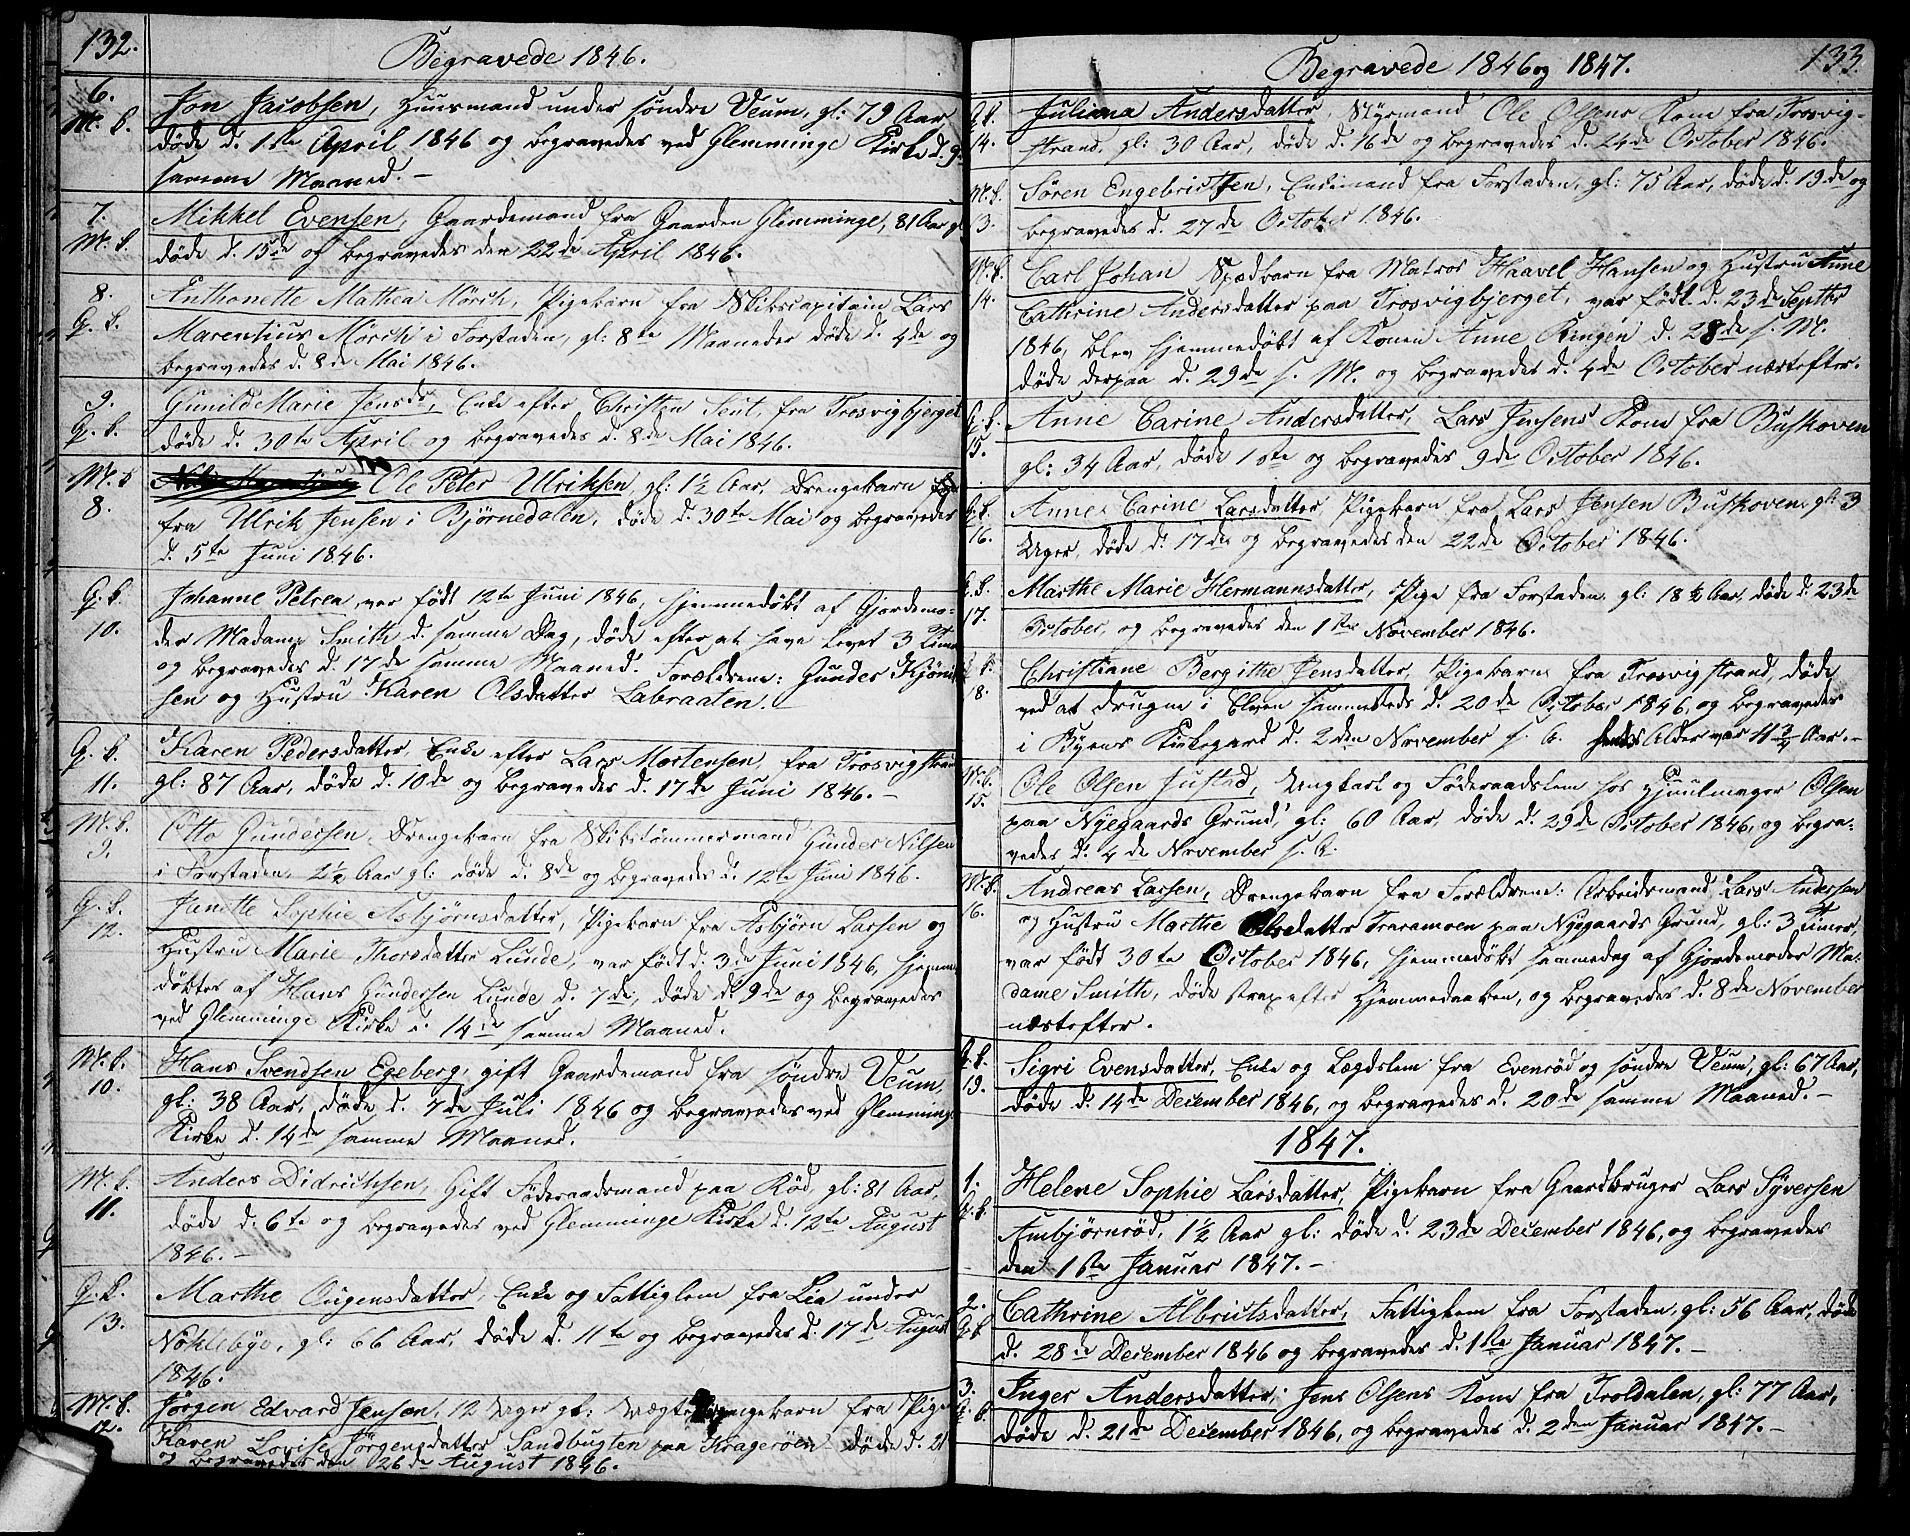 132.
Begravede 1846.
6.
M. k.
Jon Jacobsen, Huusmand under søndre Veum, gl: 79 Aar
døde d. 1ste April 1846 og begravedes ved Glemminge Kirke d. 9.
samme Maaned. –
7.
M. k.
Mikkel Evensen, Gaardemand fra Gaarden Glemminge, 81 Aar gl.
døde d. 15de og begravedes den 22de April 1846.
8.
Q. k.
Anthonette Mathea Mörch, Pigebarn fra Skibscapitain Lars
Marentius Mörch i Forstaden, gl: 8te Maaneder døde d. 4de og
begravedes d. 8de Mai 1846.
9.
Q. k.
Gunild Marie Jensdr, Enke efter Christen Sent, fra Trosvigbjerget
døde d. 30te April og begravedes d. 8de Mai 1846.
M. k
8.
Ole Peter Ulriksen gl: 1½ Aar, Drengebarn
fra Ulrik Jensen i Bjørnedalen, døde d. 30te Mai og begravedes
d. 5te Juni 1846.
Q. k.
10.
Johanne Petrea, var født 12te Juni 1846, hjemmedøbt af Gjordemo-
der Madame Smith d. samme Dag, døde efter at have levet 3 Timer
og begravedes d. 17de samme Maaned. Forældrene: Gunder Kjøni
sen og Hustru Karen Olsdatter Labraaten. –
Q. k.
11.
Karen Pedersdatter, Enke efter Lars Mortensen, fra Trosvigstrand
gl: 87 Aar, døde d. 10de og begravedes d. 17de Juni 1846. –
M. k.
9.
Otto Gundersen, Drengebarn fra Skibstømmermand Gunder Nilsen
i Forstaden, 2½ Aar gl: døde d. 8de og begravedes d. 12te Juni 1846.
Q. k.
12.
Janette Sophie Asbjørnsdatter, Pigebarn fra Asbjørn Larsen og
Hustru Marie Thorsdatter Lunde, var født d. 3de Juni 1846, hjemme
døbtes af Hans Gundersen Lunde d. 7de, døde d. 9de og begravedes
ved Glemminge Kirke d. 14de samme Maaned.
M. k.
10.
Hans Svendsen Egeberg, gift Gaardemand fra søndre Veum,
gl: 38 Aar, døde d. 7de Juli 1846 og begravedes ved Glemminge
Kirke d. 14de samme Maaned.
M. k.
11.
Anders Didrichsen, Gift Føderaadsmand paa Rød, gl: 81 Aar,
døde d. 6te og begravedes ved Glemminge Kirke d. 12te August
1846. –
Q. k.
13.
Marthe Augensdatter, Enke og Fattiglem fra Lia under
Nøklebye, gl: 66 Aar, døde d. 11te og begravedes d. 17de August
1846.
M. k.
12.
Jörgen Edvard Jensen, 12 Uger gl: Uægte Drengebarn fra Pige
Karen Lovise Jørgensdatter Sandbugten paa Kragerøen døde d. 21
og begravedes den 26de August 1846.
133.
Begravede 1846 og 1847.
Q. k.
14.
Juliana Andersdatter, Styrmand Ole Olsens Kone fra Trosvig-
strand, gl: 30 Aar, døde d. 16de og begravedes d. 24de October 1846.
M. k.
13.
Søren Engebrictsen, Enkemand fra Forstaden, gl: 75 Aar, døde d. 19de og
begravedes d. 27de October 1846.
M. k.
14.
Carl Johan Spædbarn fra Matros Haavel Hansen og Hustru Anne
Cathrine Andersdatter paa Trosvigbjerget, var født d. 23de Septbr
1846, blev hjemmedøbt af Konen Anne Ringen d. 28de s. M.
døde derpaa d. 29de s. M. og begravedes d. 4de October næstefter.
Q. k.
15.
Anne Carine Andersdatter, Lars Jensens Kone fra Buskoven
gl: 34 Aar, døde 1ste og begravedes 9de October 1846.
Q. k.
16.
Anne Carine Larsdatter Pigebarn fra Lars Jensen Buskoven, gl: 3
Uger, døde d. 17de og begravedes den 22de October 1846.
Q. k.
17.
Marthe Marie Hermannsdatter, Pige fra Forstaden, gl: 18½ Aar, døde d. 23de
October, og begravedes den 1ste November 1846.
Q. k.
18.
Christiane Bergithe Jensdatter, Pigebarn fra Trosvigstrand, døde
ved at drugne i Elven sammesteds d. 20de October 1846, og begravedes
i Byens Kirkegard d. 2den November s. A. hendes Alder var 4¾ Aar. –
M. k.
15.
Ole Olsen Justad, Ungkarl og Føderaadslem hos Hjuulmager Olsen
paa Nyegaards Grund, gl: 60 Aar, døde d. 29de October 1846, og begra-
vedes d. 4de November s. A.
M. k.
16.
Andreas Larsen, Drengebarn fra Forældrene: Arbeidsmand Lars Andersen
og Hustru Marthe Olsdatter Traramoen paa Nyegaards Grund, gl: 3 Timer,
var født 30te October 1846, hjemmedøbt sammedag af Gjordemoder Ma-
dame Smith, døde strax efter Hjemmedaaben, og begravedes d. 8de November
næstefter.
Q. k.
19.
Sigri Evensdatter, Enke og Lægdslem fra Evenrød og søndre Veum, gl: 67 Aar,
døde d. 14de December 1846, og begravedes d. 20de samme Maaned. –
1847.
1.
Q. k.
Helene Sophie Larsdatter, Pigebarn fra Gaardbruger Lars Syversen
Ambjørnrød, 1½ Aar gl: døde d. 23de December 1846, og begravedes
den 1ste Januar 1847. –
2.
Q. k.
Cathrine Albrictsdatter, Fattiglem fra Forstaden, gl: 56 Aar, døde
d. 28de December 1846 og begravedes d. 1ste Januar 1847. –
3.
Q. k.
Inger Andersdatter, Jens Olsens Kone fra Troldalen, gl: 77 Aar,
døde d. 21de December 1846, og begravedes d. 2den Januar 1847. –